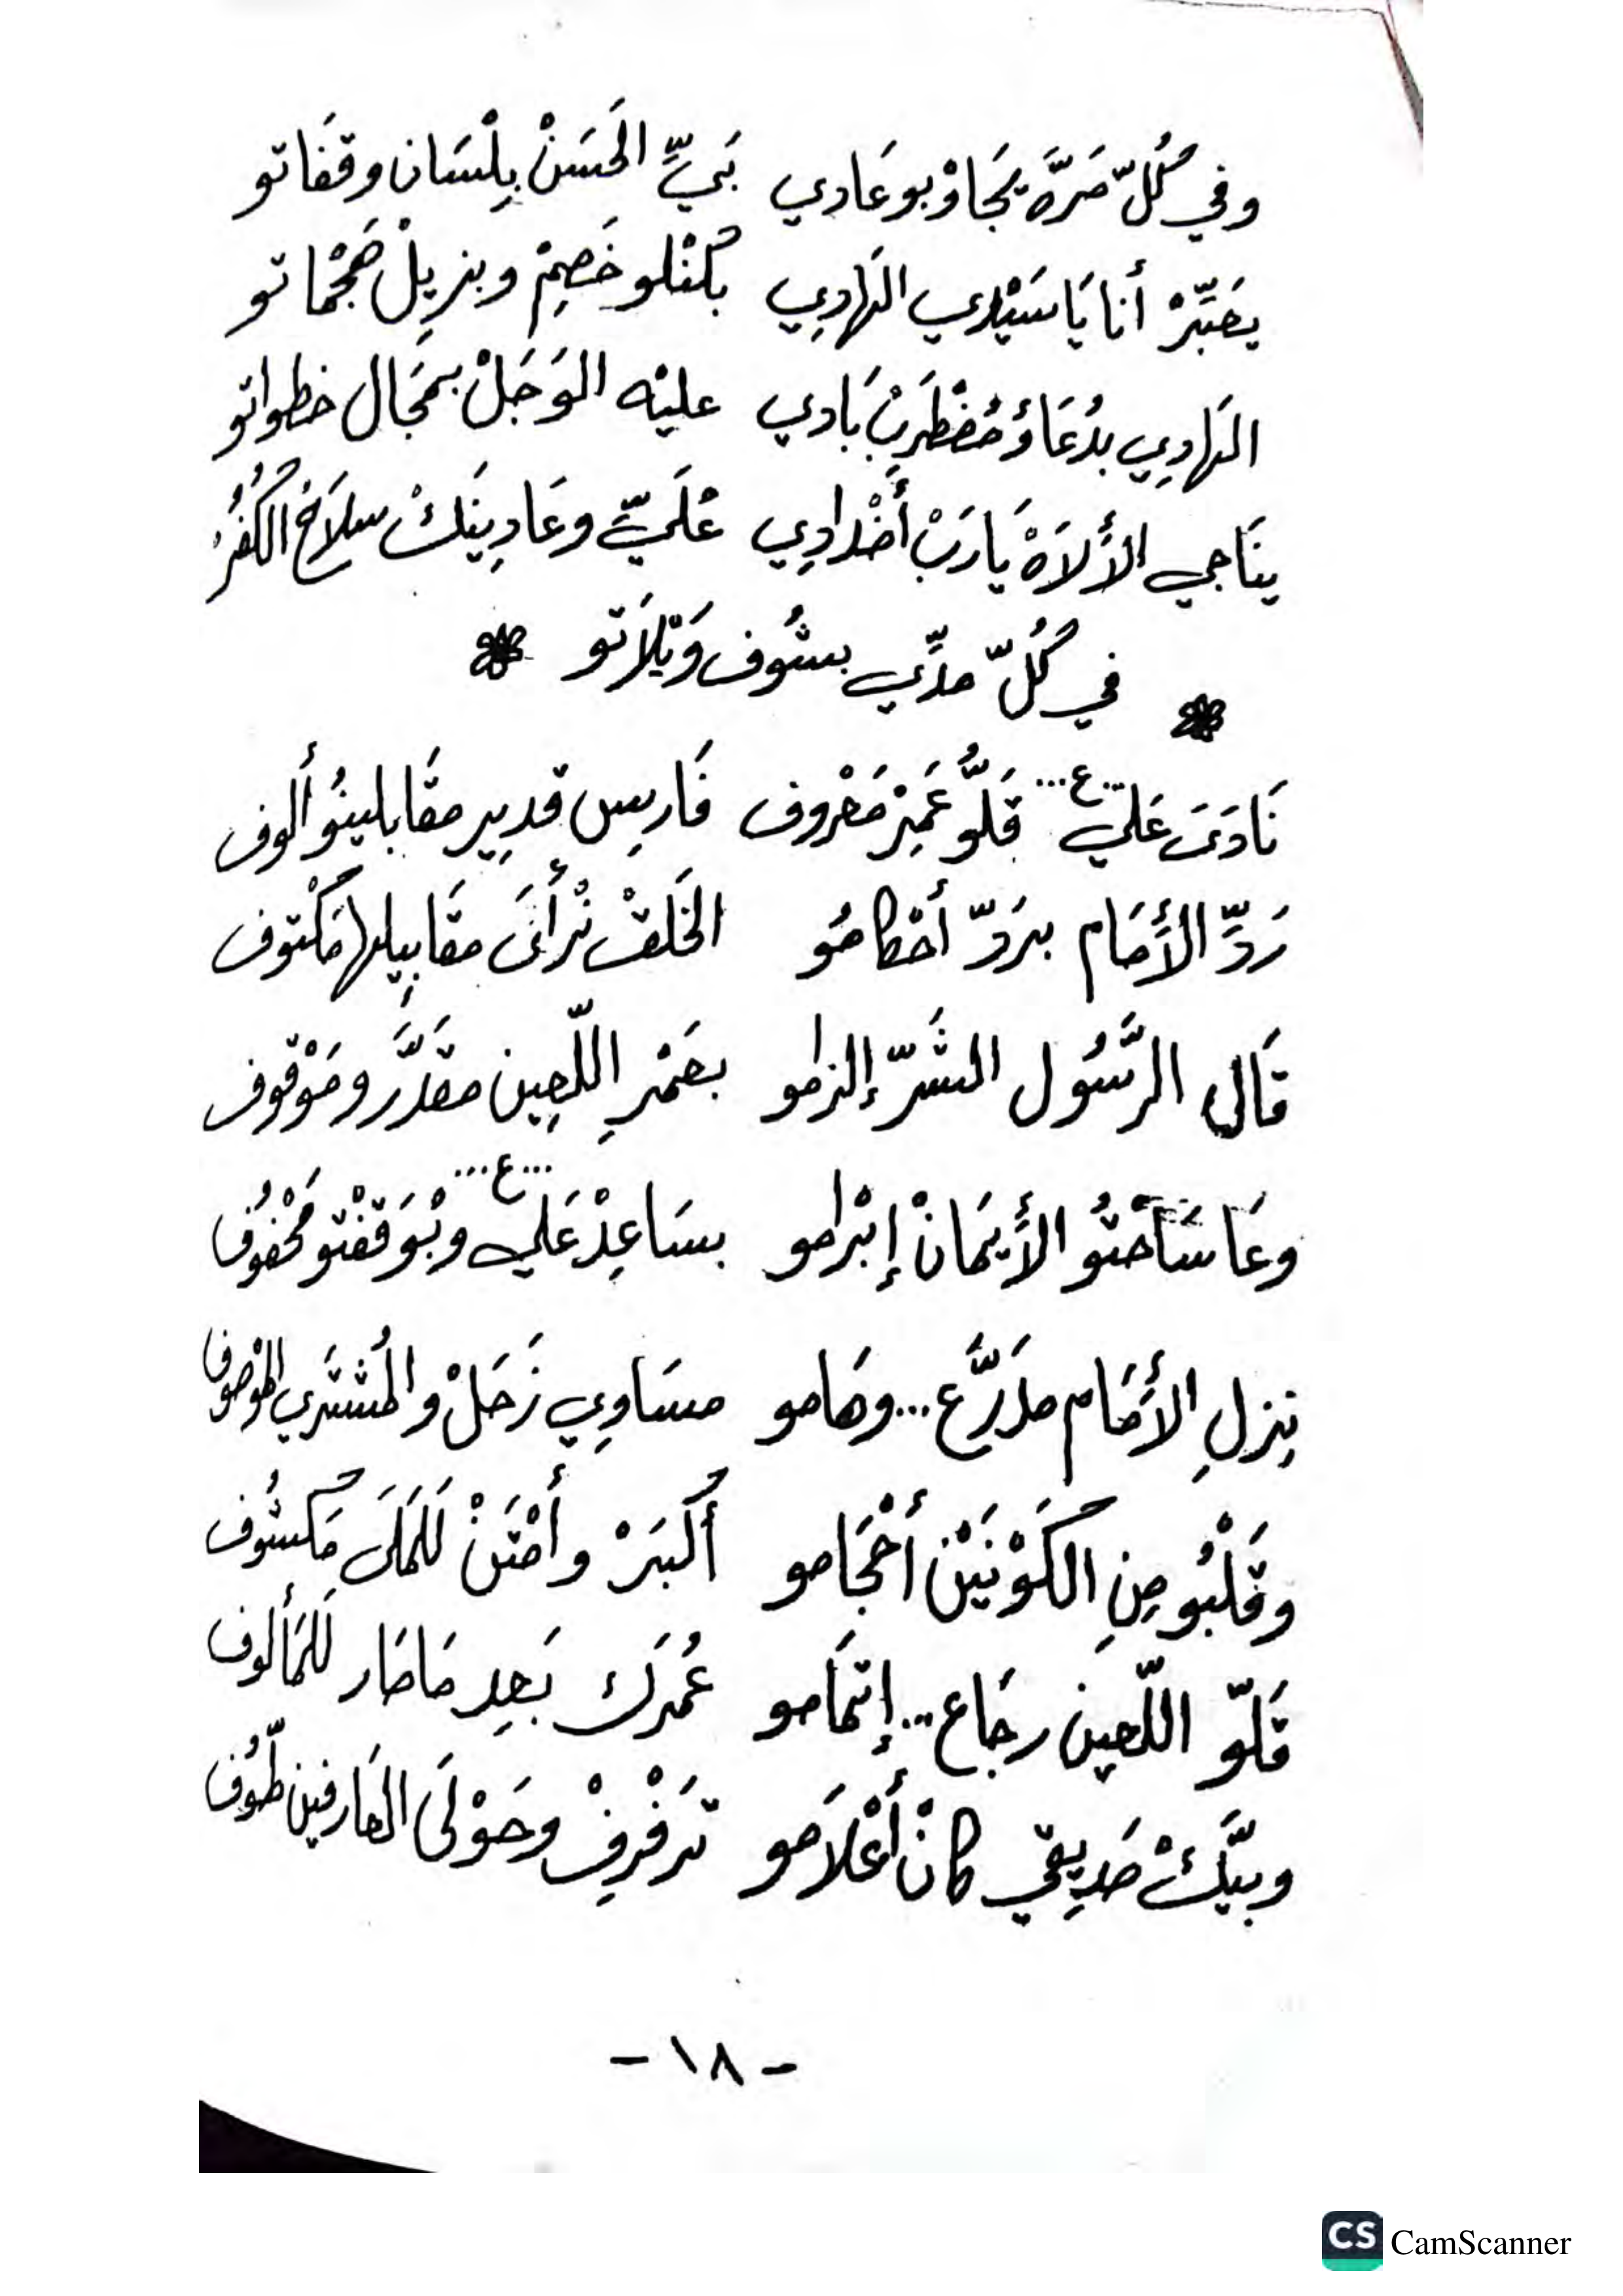 وفي كُلّ مَرَّة يجَاوْبو عَادي   بَيِّ الحَسَنْ بِلْسَان وقفَاتو
يعَبِّرْ أنا يَا سَيْدي الهَادِي   بكُنْلو خَصِمْ وبزيلْ هَجْمَاتو
الهَادِي بدُعَاؤ مُضْطَرِبْ بَادي   عليْه الوَجَلْ بمجَال خطواتو
ينَاجي الأَلاَهْ يَا رَبْ أَضْدادِي   عْلَيِّ وعَادِينَكْ سلاَحْ الكُفُرْ
في كُلّ مدِّي بشُوف وَيْلاَتو
نَادَىَ عَلي ...ع... قَلُّو عَمِرْ مَعْروف   فَارِس قدِير مقَابلينُو ألوف
رَدِّ الأَمَام برَدّ أحْكامُو   الخَلقْ تْرأىَ مقَابِيلها مَكْتوف
قَالِ الرَّسُول الشَّرّ إلزامو   بعَمْرِ اللّعِين مقدَّر ومَوْقوف
وعَا سَاحْتُو الأَيمَانْ إبْرامو   بسَاعِدْ عَلي ...ع... وبْوَقفْتو مَحْفوُف
نِزلِ الأَمَام مدَرَّع ...وهَامو   مسَاوِي زَحَلْ والمُشتَري الموْصوف
وقَلْبُو مِنِ الكَوْنَيْن أحْجَامو   أكْبَرْ وأَمْتَنْ لَلمَلَىَ مَكشُوف
قَلّو اللّعِين رجَاع ...إتمَامو   عُمرَك بَعِد مَا صَار لَلمَألوف
وبيَّكْ صَدِيقي كانْ أَعْلاَمو   ترَفْرِفْ وحَوْلَىَ العَارفين طّوُف
- ١٨ -
CS CamScanner